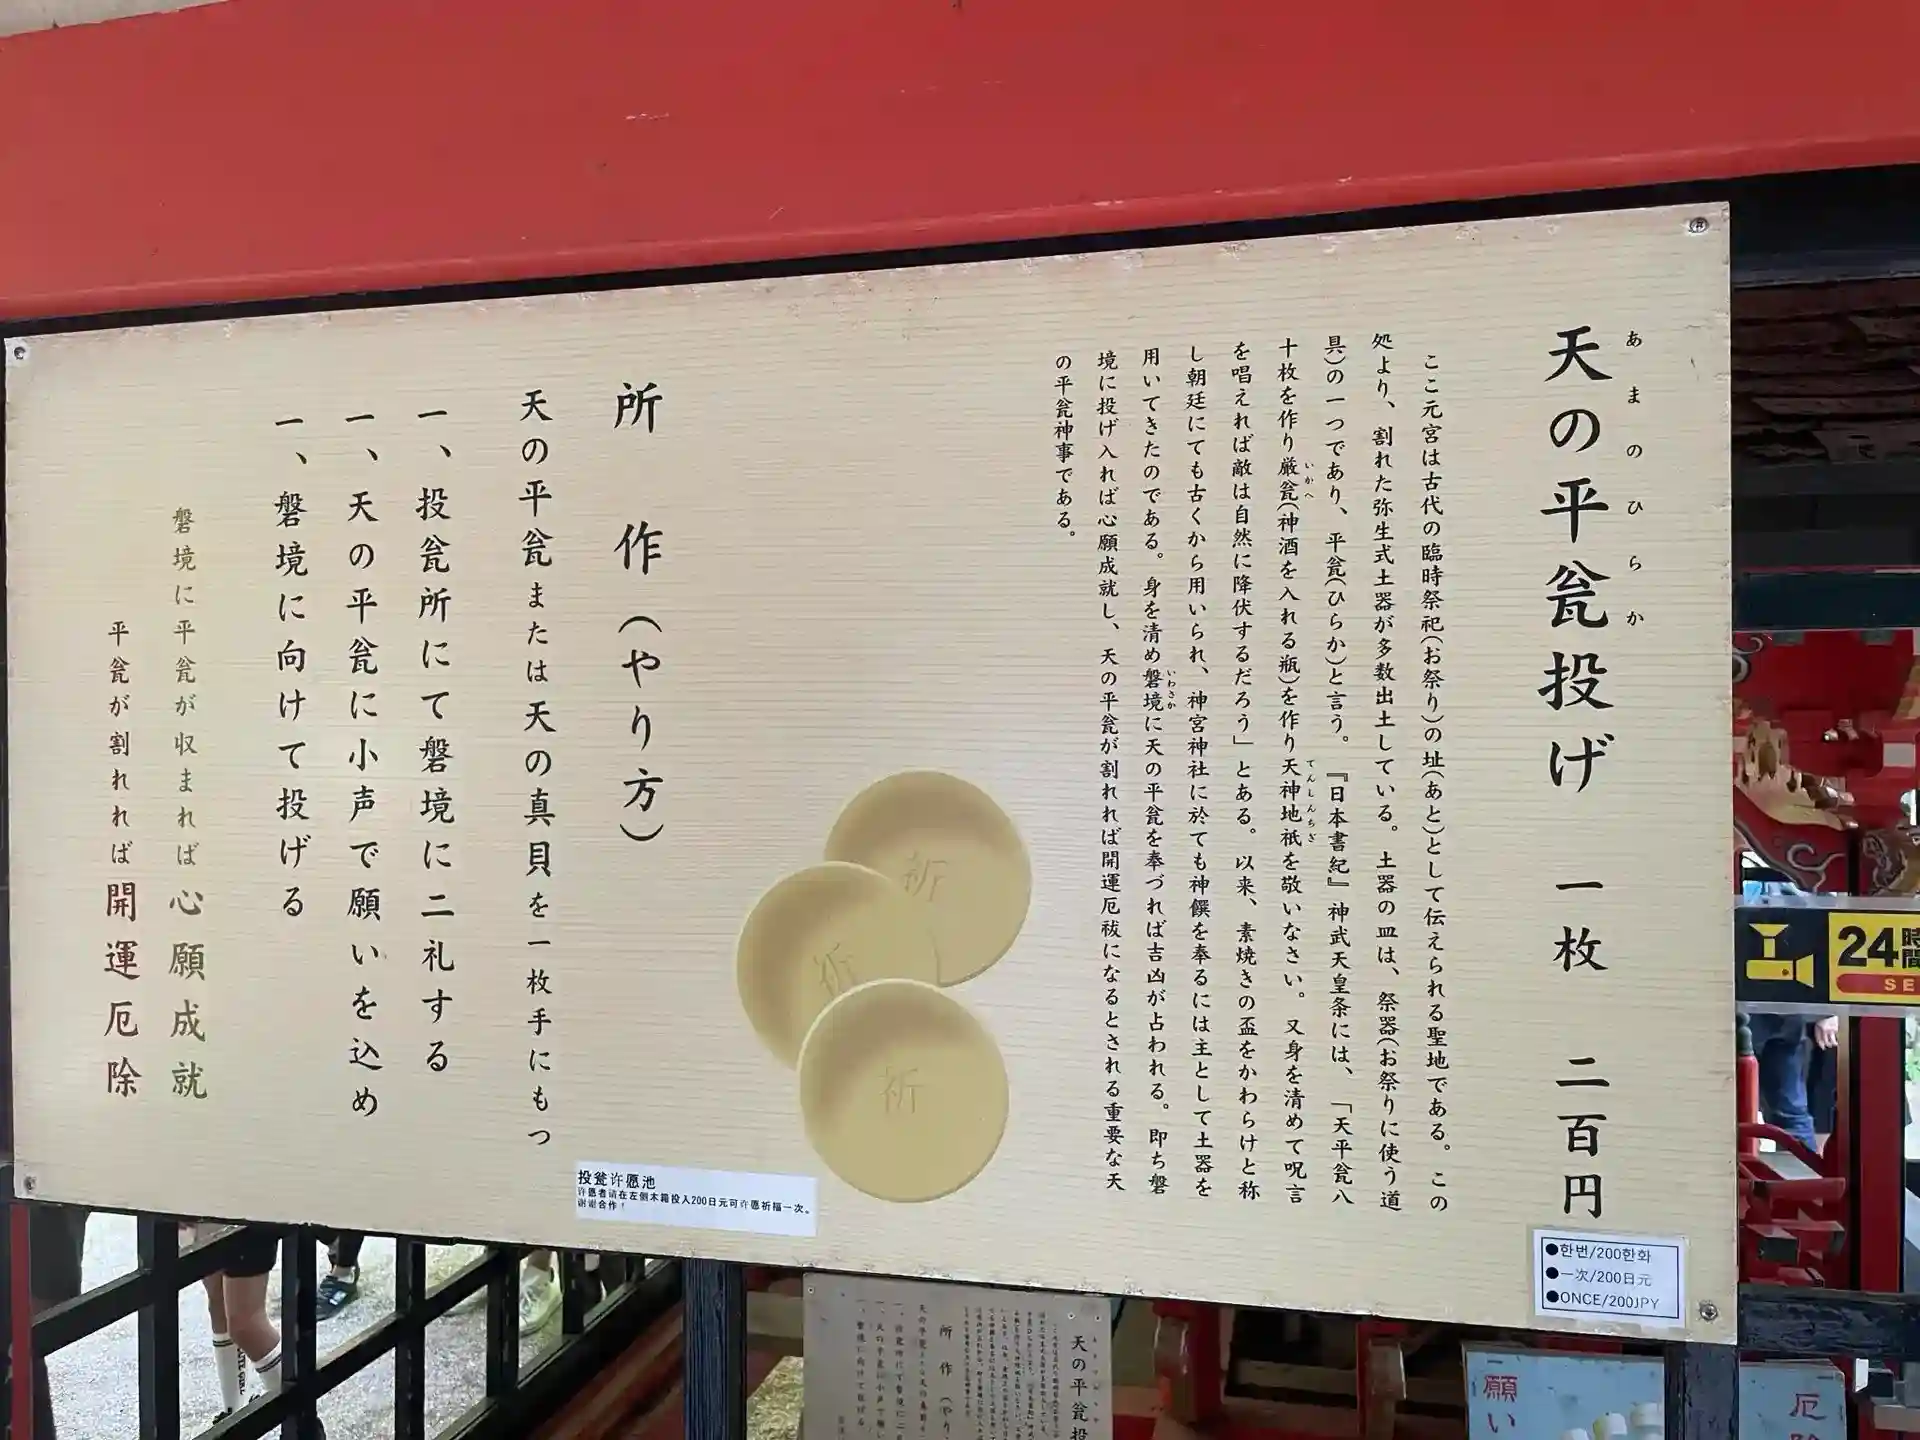 天の平瓮投げ　一枚　二百円
あまのひらか
ここ元宮は古代の臨時祭祀(お祭り)の址(あと)として伝えられる聖地である。この
処より、割れた弥生式土器が多数出土している。土器の皿は、祭器(お祭りに使う道
具)の一つであり、平瓮(ひらか)と言う。『日本書紀』神武天皇条には、「天平瓮八
十枚を作り厳瓮(神酒を入れる瓶)を作り天神地祇を敬いなさい。又身を清めて呪言
いかへ
てんしんちぎ
を唱えれば敵は自然に降伏するだろう」とある。以来、素焼きの盃をかわらけと称
し朝廷にても古くから用いられ、神宮神社に於ても神饌を奉るには主として土器を
用いてきたのである。身を清め磐境に天の平瓮を奉づれば吉凶が占われる。即ち磐
いわさか
境に投げ入れば心願成就し、天の平瓮が割れれば開運厄祓になるとされる重要な天
の平瓮神事である。
祈
祈
祈
所　作(やり方)
天の平瓮または天の真貝を一枚手にもつ
一、投瓮所にて磐境に二礼する
一、天の平瓮に小声で願いを込め
一、磐境に向けて投げる
磐境に平瓮が収まれば心願成就
平瓮が割れれば開運厄除
投瓮许愿池
许愿者请在左侧木箱投入200日元可许愿祈福一次。
谢谢合作！
●한번/200한화
●一次/200日元
●ONCE/200JPY
24時間
SE
天の平瓮投
所　作(やり
願い
厄除